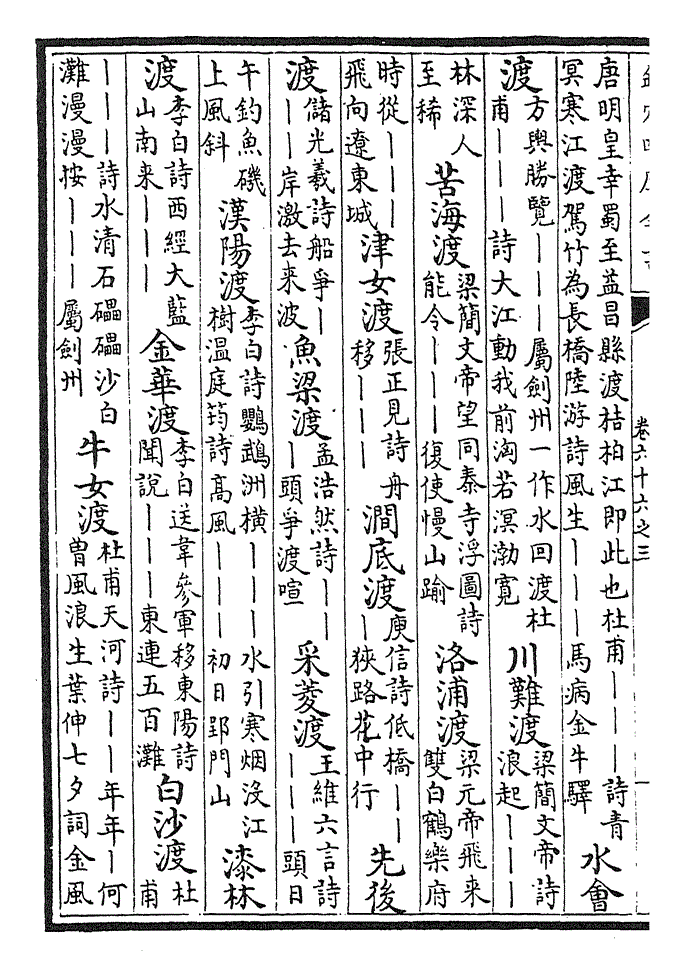 卷六十六之三
唐明皇幸蜀至益昌縣渡桔柏江即此也杜甫———詩青
冥寒江渡駕竹為長橋陸游詩風生———馬病金牛驛
水會
渡
方輿勝覽———屬劍州一作水回渡杜
甫———詩大江動我前淘若溟渤寬
川難渡
梁簡文帝詩
浪起———
林深人
至稀
苦海渡
梁簡文帝望同泰寺浮圖詩
能令———復使慢山踰
洛浦渡
梁元帝飛来
雙白鶴樂府
時從———
飛向遼東城
津女渡
張正見詩舟
移———
澗底渡
庾信詩低橋——
—狹路花中行
先後
渡
儲光羲詩船爭—
——岸激去来波
魚梁渡
孟浩然詩——
—頭爭渡喧
采菱渡
王維六言詩
———頭日
午釣魚磯
上風斜
漢陽渡
李白詩鸚鵡洲橫———水引寒烟沒江
樹溫庭筠詩高風———初日郢門山
漆林
渡
李白詩西經大藍
山南来———
金華渡
李白送韋參軍移東陽詩
聞說———東連五百灘
白沙渡
杜
甫
———詩水清石礧礧沙白
灘漫漫按———屬劍州
牛女渡
杜甫天河詩——年年—何
曽風浪生葉伸七夕詞金風